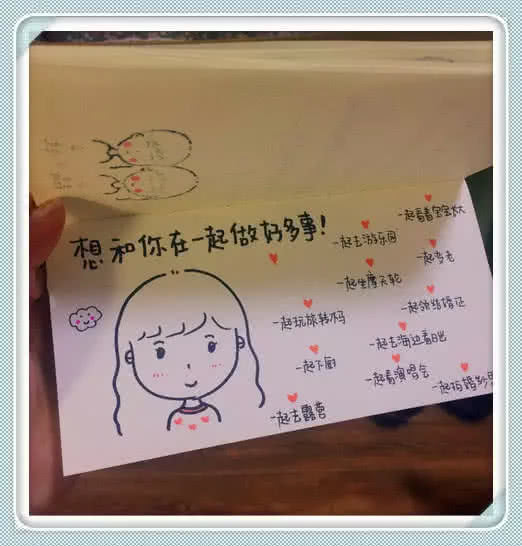 想和你在一起做好多事!
一起看着宝宝长大
一起去游乐园
一起变老
一起坐摩天轮
一起领结婚证
一起玩旋转木马
一起去海边看日出
一起下厨
一起看演唱会
一起拍婚纱照
一起去露营